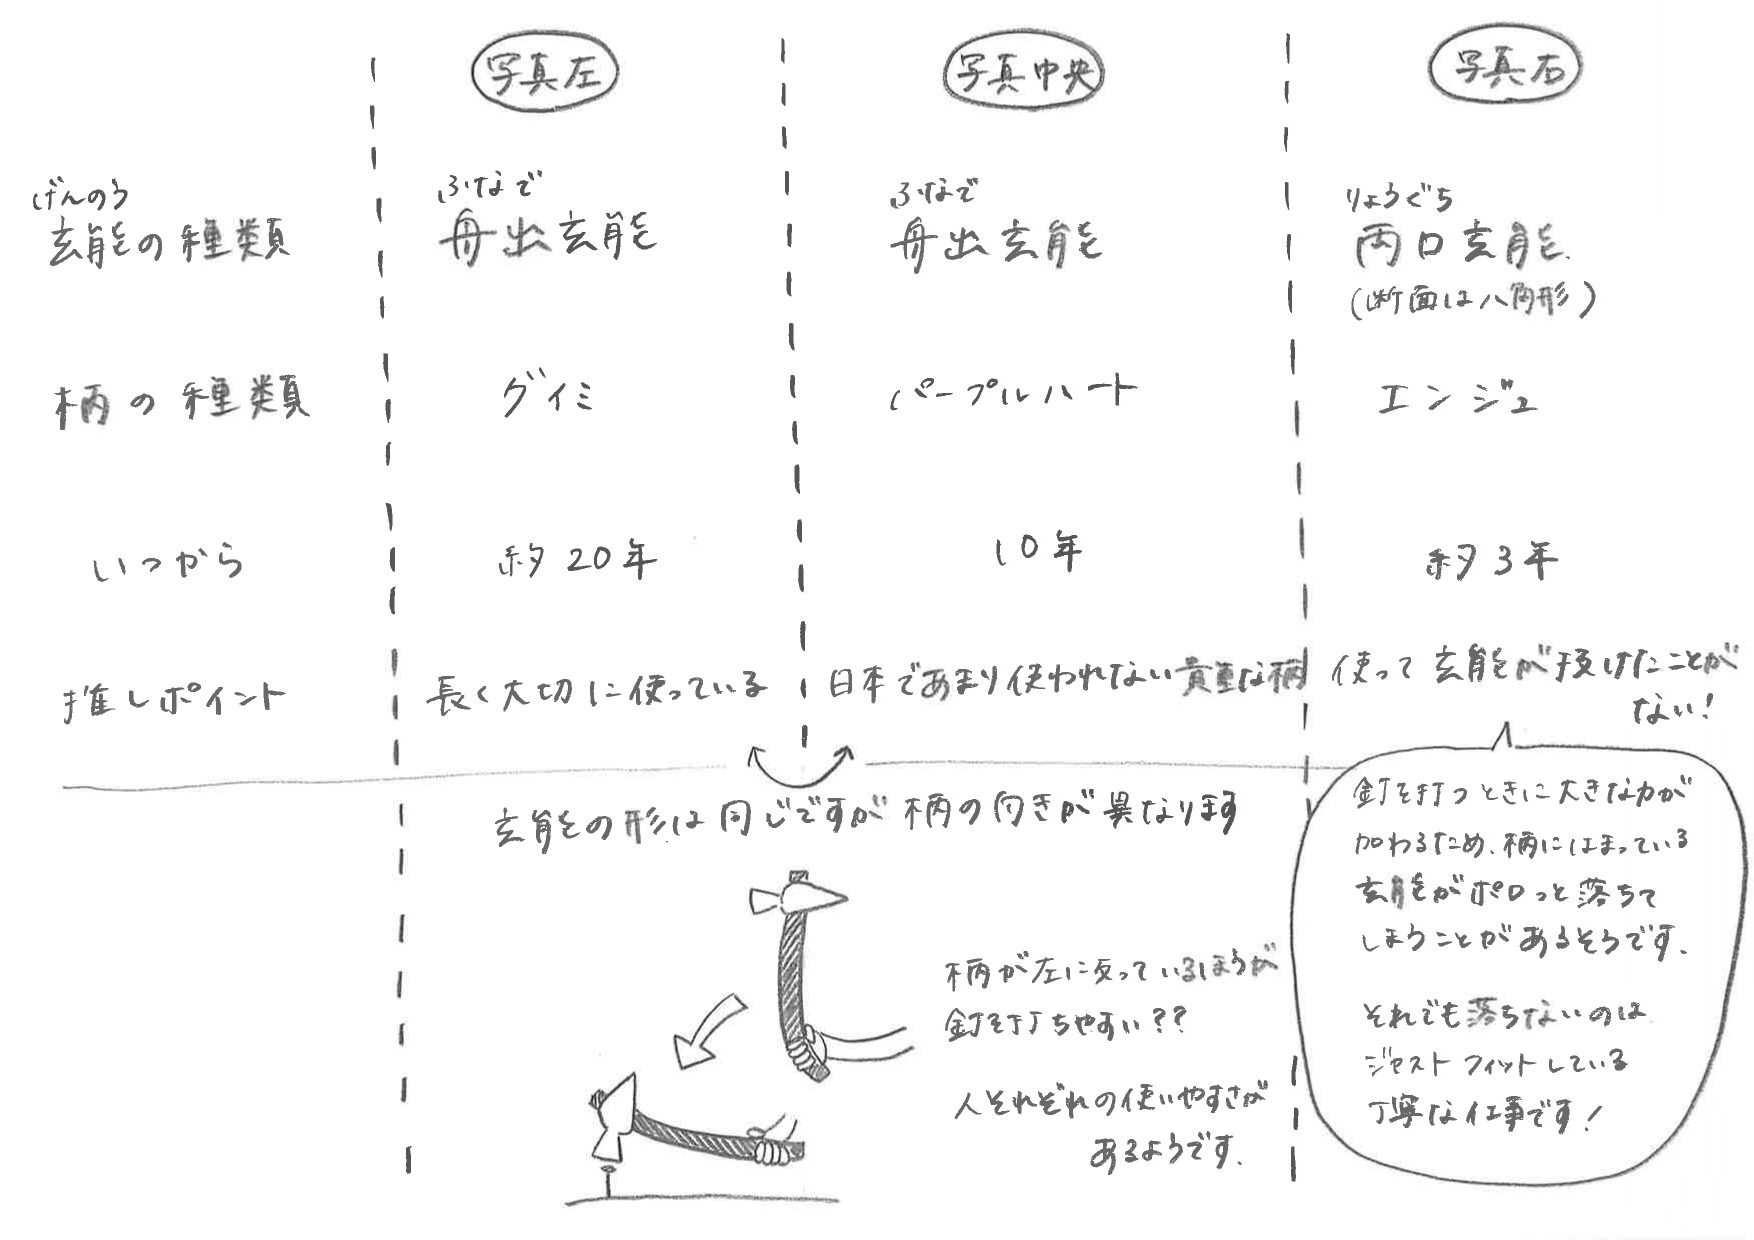 写真左
写真中央
写真右
げんのう
玄能の種類
ふなで
舟出玄能
ふなで
舟出玄能
りょうぐち
両口玄能
(断面は八角形)
柄の種類
グイミ
パープルハート
エンジュ
いつから
約20年
10年
約3年
推しポイント
長く大切に使っている
日本であまり使われない貴重な柄
使って玄能が抜けたことが
ない!
玄能の形は同じですが柄の向きが異なります
柄が左に反っているほうが
釘を打ちやすい??
人それぞれの使いやすさが
あるようです.
釘を打つときに大きな力が
加わるため、柄にはまっている
玄能がポロっと落ちて
しまうことがあるそうです.
それでも落ちないのは
ジャストフィットしている
丁寧な仕事です!